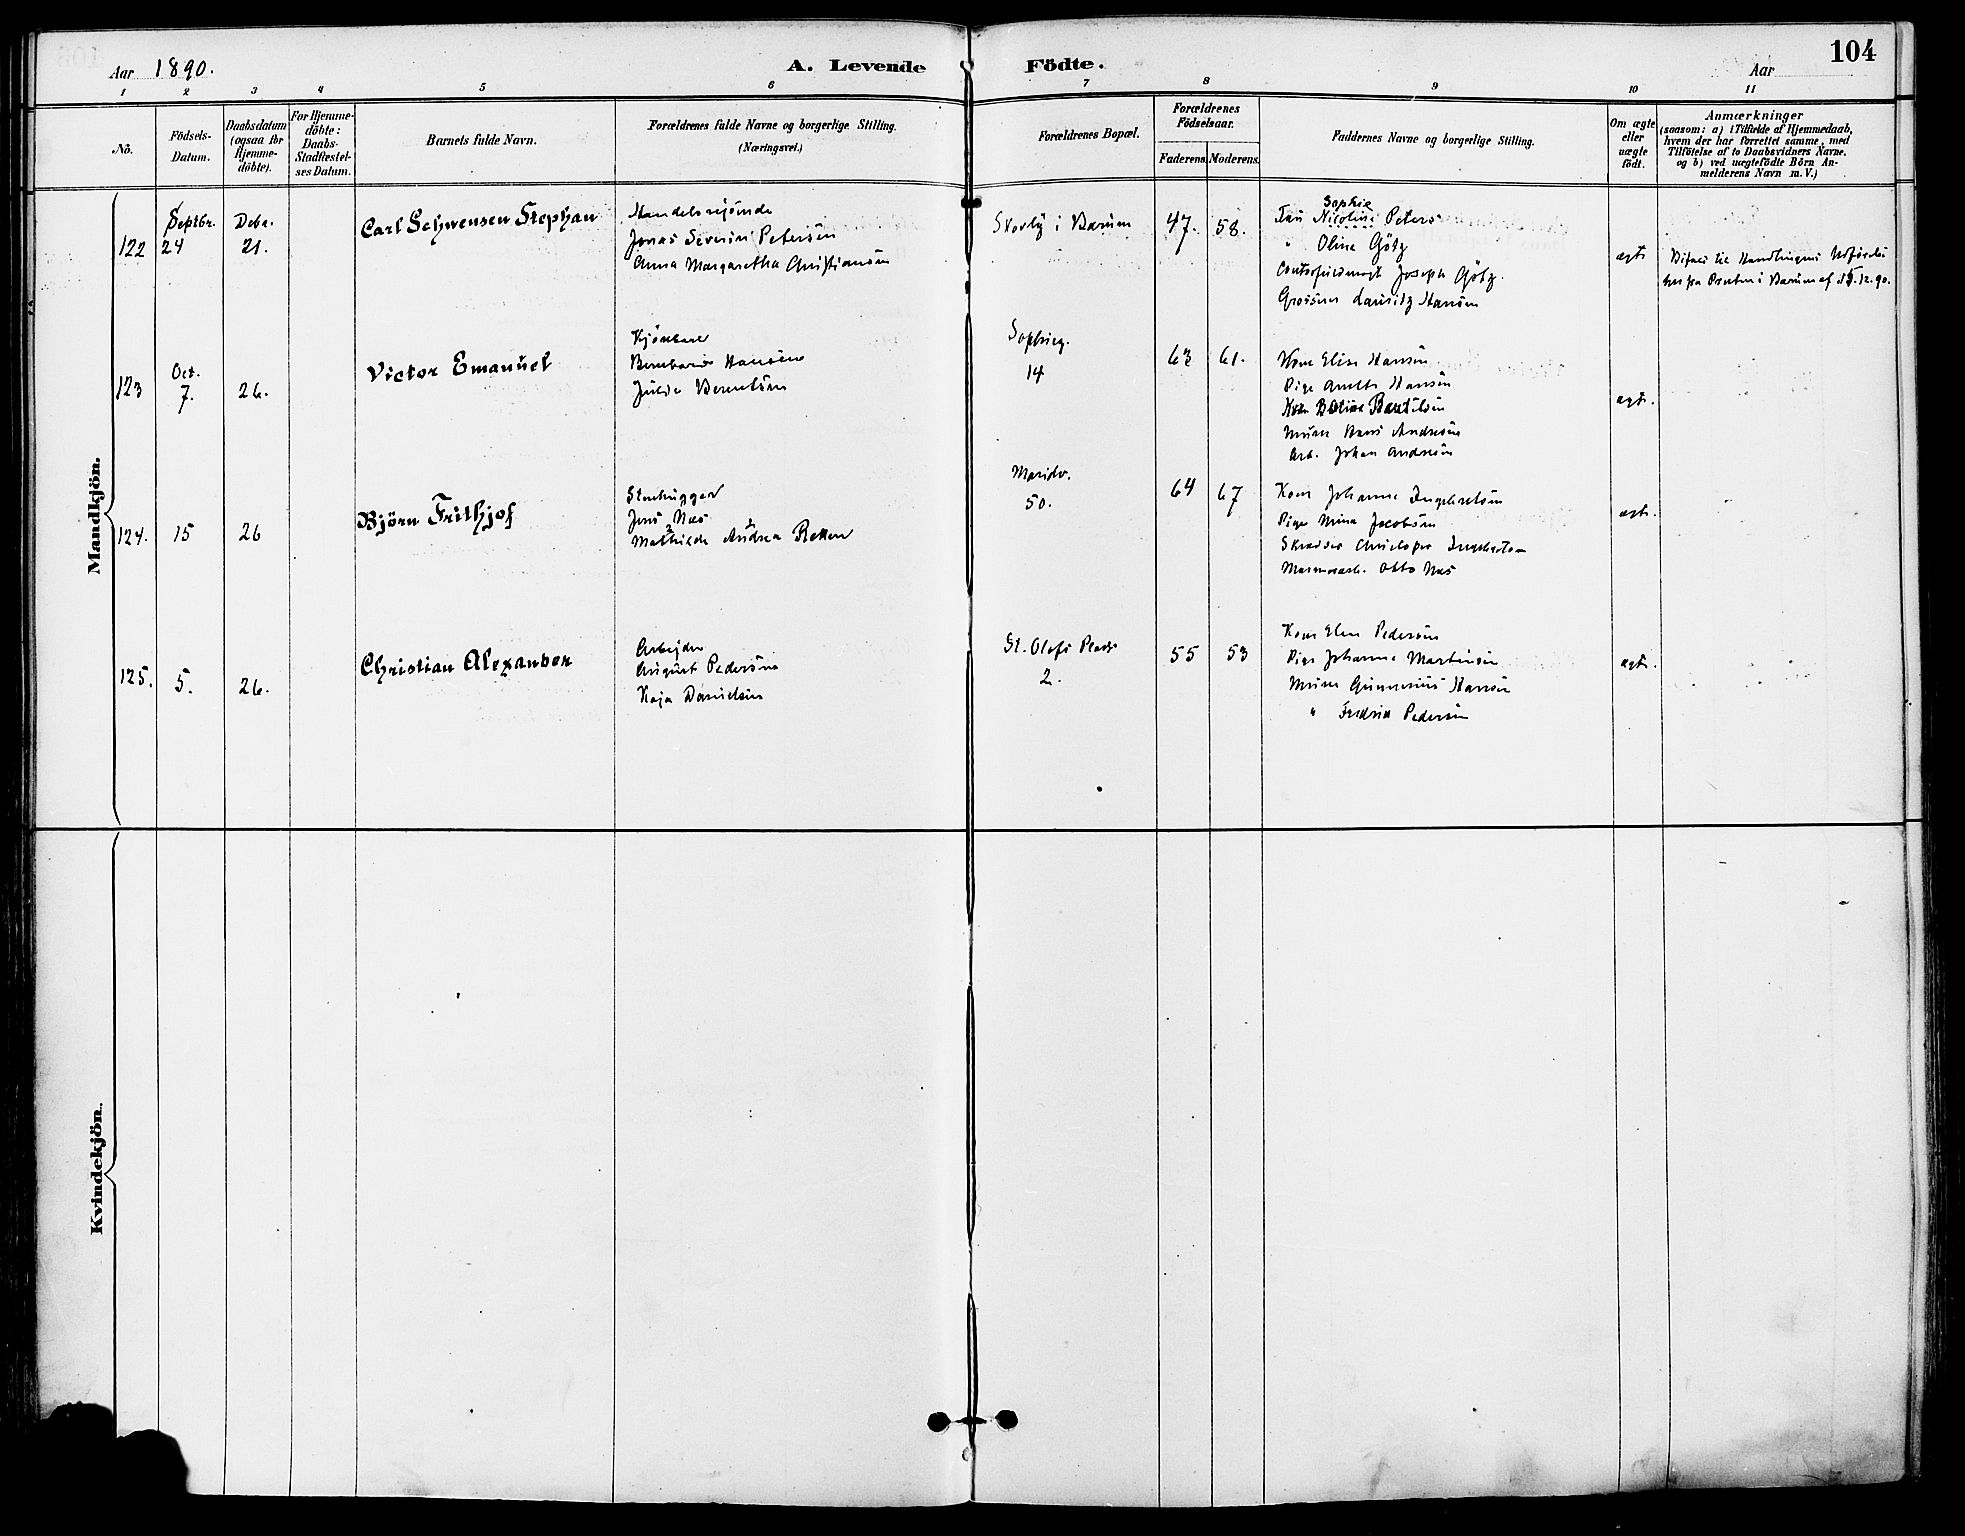 Aar 1890.
A. Levende Födte.
Aar
104
1 2 3 4 5 6 7 8 9 10 11
No.
Födsels-Datum.
Daabsdatum (ogsaa for Hjemme-döbte).
For Hjemme-döbte: Daabs-Stadfæstel-ses Datum.
Barnets fulde Navn.
Forældrenes fulde Navne og borgerlige Stilling.
(Næringsvei.)
Forældrenes Bopæl.
Forældrenes Födselsaar.
Faderens. Moderens.
Faddernes Navne og borgerlige Stilling.
Om ægte eller uægte födt.
Anmærkninger
(saasom: a) i Tilfælde af Hjemmedaab,
hvem der har forrettet samme, med
Tilföielse af to Daabsvidners Navne.
og b) ved uægtefödte Börn An-
melderens Navn m. V.)
Mandkjön.
122
Septbr. 24
Debr. 21.
Carl Schwensen Stephan
Handelsreisende
Jonas Severin Petersen
Anna Margaretha Christiansen
i Bærum
47. 58.
Sophie
Fru Nicoline Peters
" Oline Götz
Joseph Götz.
Grosserer Lauritz Hansen
ægte
12.90.
123
Oct. 7.
26.
Victor Emanuel
Kjörekarl
Bernhard Hansen
Julie Berentsen
Sophieg.
14
63 61.
Kone Elise Hansen
Pige Anette Hansen
Hans Andresen
Arb. Johan Andresen
ægte.
124.
15
26
Björn Frithjof
Stenhugger
Jens Næs
Mathilde Andrea Bekken
Maridv.
50.
64 67
Kone Johanne Ingebretsen
Pige Mina Jacobsen
Skrædder Christopher Ingebretsen
Otto Næs
ægte.
125.
5.
26.
Christian Alexander
Arbeider
August Pedersen
Kaja Danielsen
St. Olafs Plads
2.
55 53
Kone Elen Pedersen
Pige Johanne Martinsen
Murer Gunnerius Hansen
" Fredrik Pedersen
ægte.
Kvindekjön.